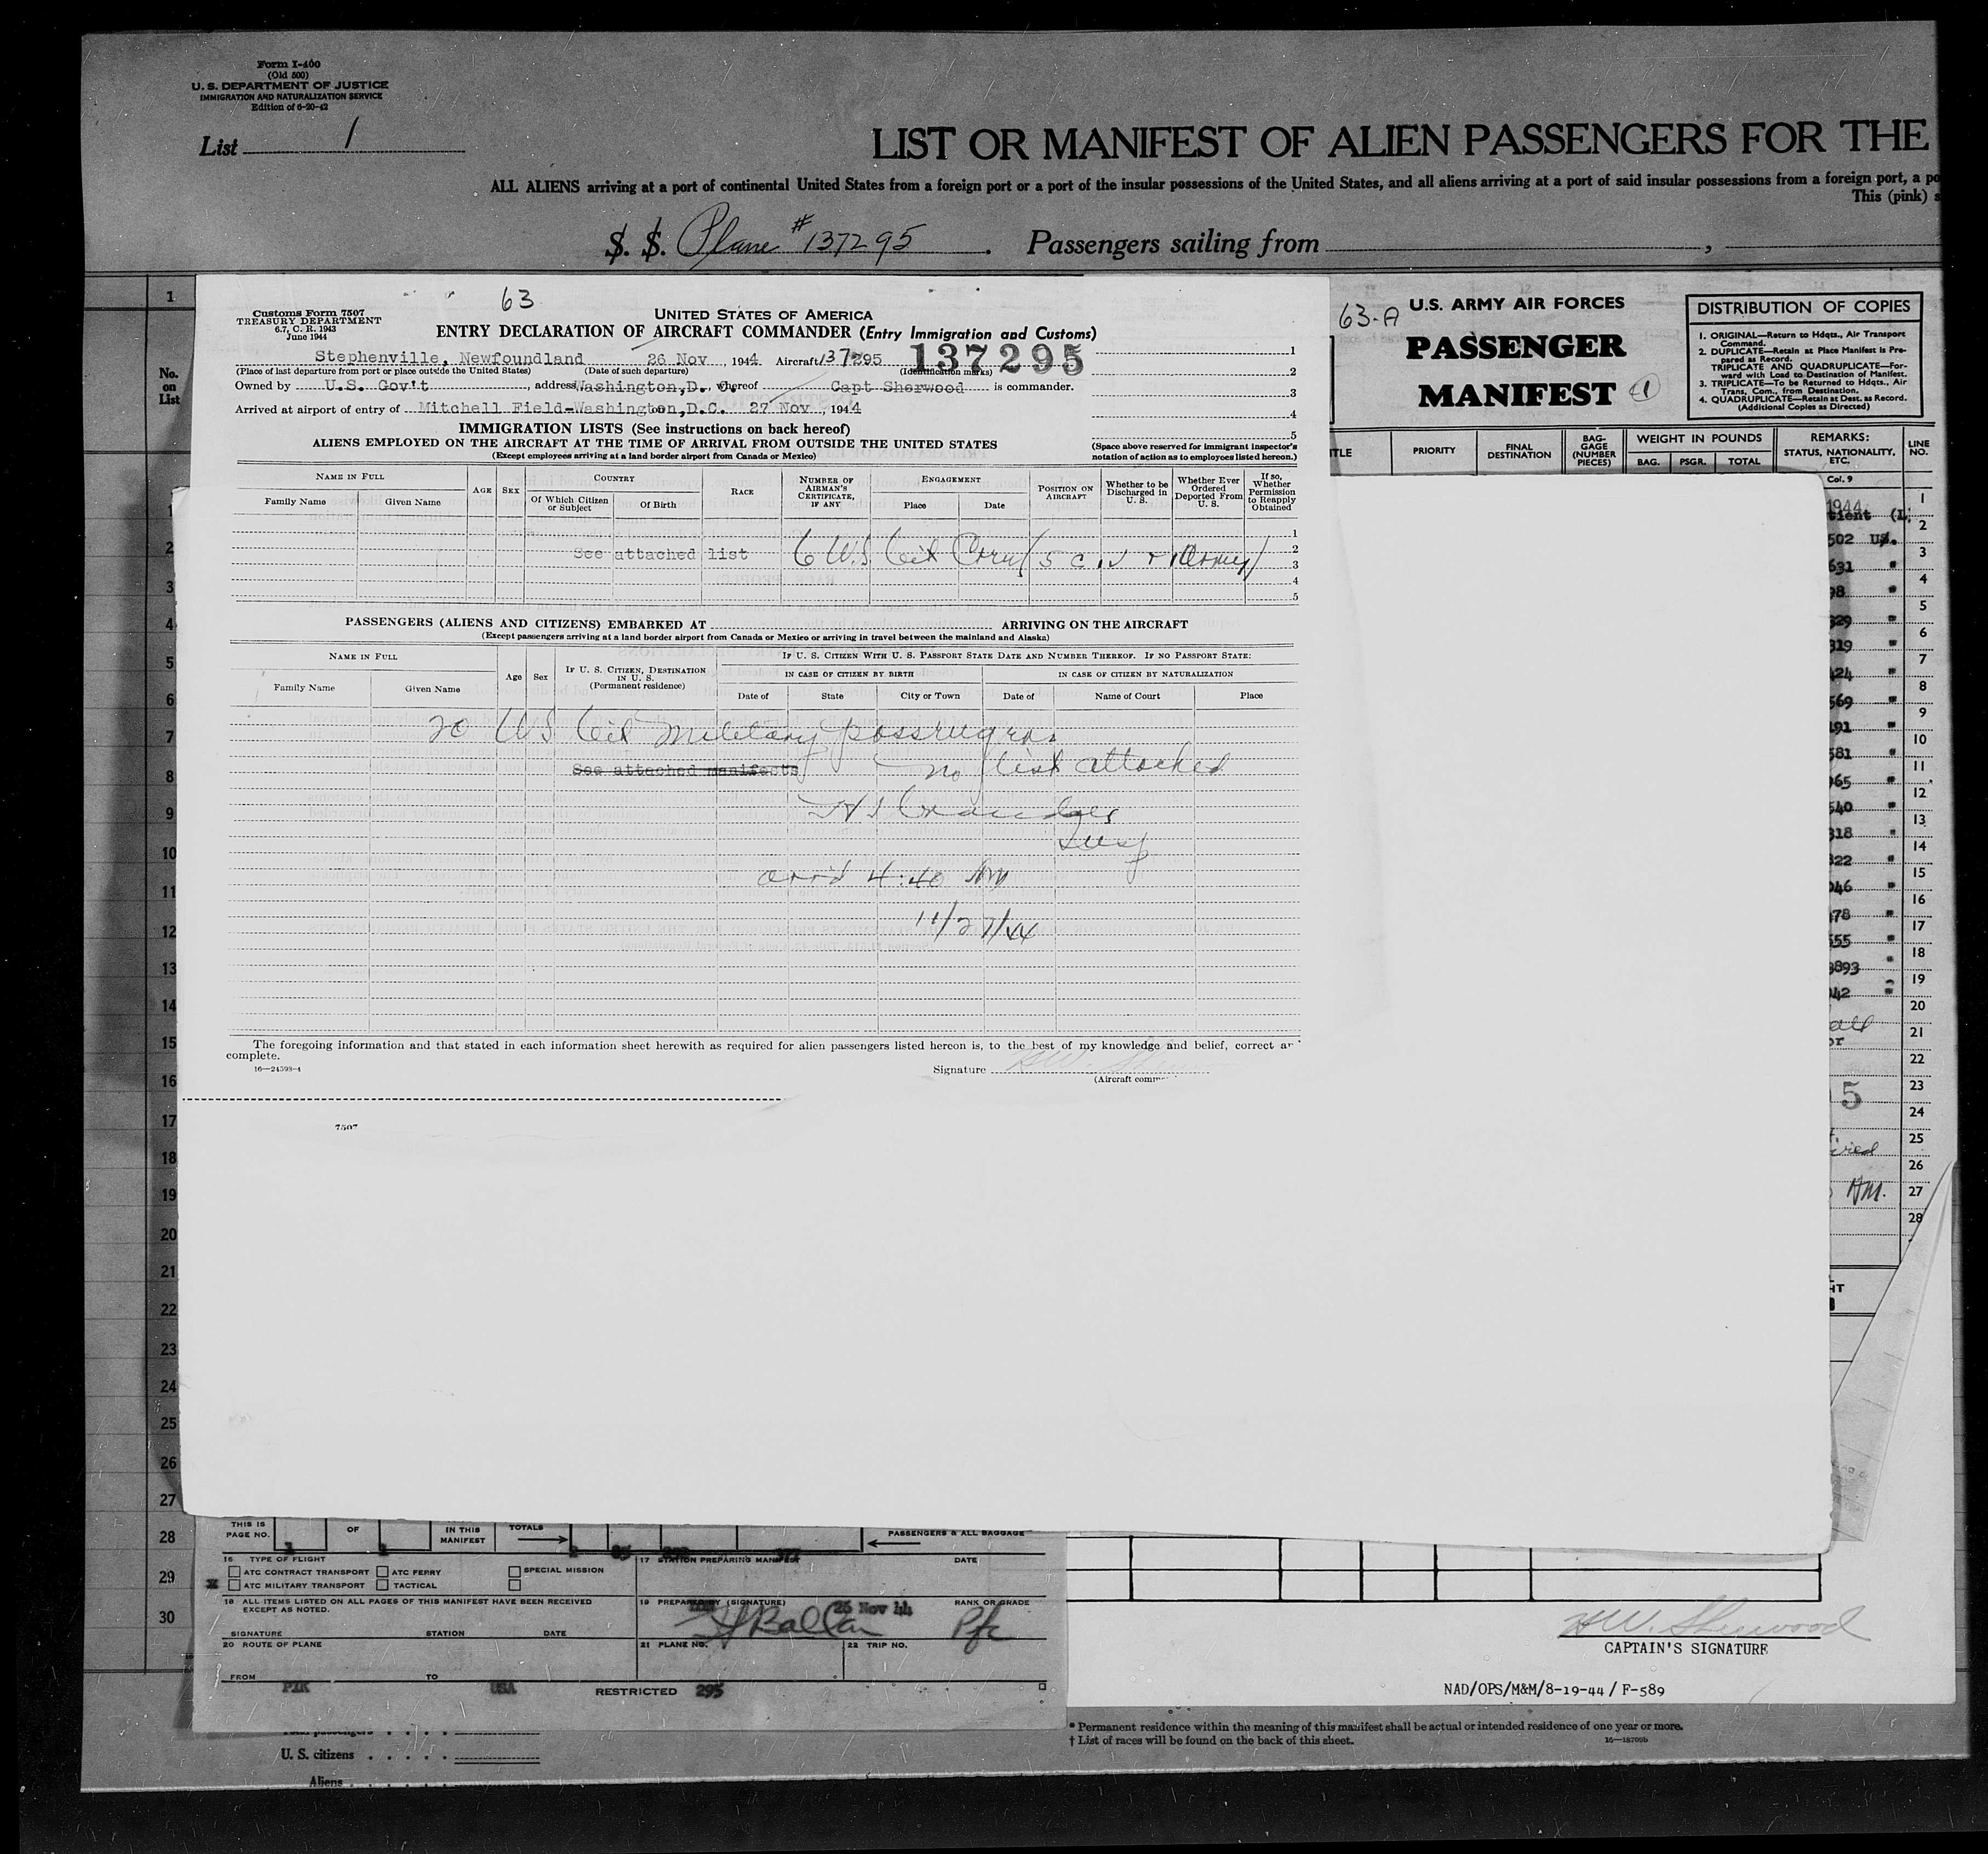 Form I-400
(Old 500)
U. S. DEPARTMENT OF JUSTICE
IMMIGRATION AND NATURALIZATION SERVICE
Edition of 6-20-42
List 1
LIST OR MANIFEST OF ALIEN PASSENGERS FOR THE
ALL ALIENS arriving at a port of continental United States from a foreign port or a port of the insular possessions of the United States, and all aliens arriving at a port of said insular possessions from a foreign port, a po
This (pink) s
S. S. Plane #137295. Passengers sailing from ,
No. on List
63
Customs Form 7507
TREASURY DEPARTMENT
6.7, C. R. 1943
June 1944
UNITED STATES OF AMERICA
ENTRY DECLARATION OF AIRCRAFT COMMANDER (Entry Immigration and Customs)
Stephenville, Newfoundland 26 Nov , 1944 Aircraft 137295 137295
(Place of last departure from port or place outside the United States) (Date of such departure) (Identification marks)
Owned by U.S. Gov't , address Washington, D. , thereof Capt Sherwood is commander.
Arrived at airport of entry of Mitchell Field-Washington, D.C. 27 Nov , 1944
IMMIGRATION LISTS (See instructions on back hereof)
ALIENS EMPLOYED ON THE AIRCRAFT AT THE TIME OF ARRIVAL FROM OUTSIDE THE UNITED STATES
(Except employees arriving at a land border airport from Canada or Mexico)
1
2
3
4
5
(Space above reserved for immigrant inspector's notation of action as to employees listed hereon.)
NAME IN FULL
Family Name Given Name
AGE SEX
COUNTRY
Of Which Citizen or Subject Of Birth
RACE
NUMBER OF AIRMAN'S CERTIFICATE, IF ANY
ENGAGEMENT
Place Date
POSITION ON AIRCRAFT
Whether to be Discharged in U. S.
Whether Ever Ordered Deported From U. S.
If so, Whether Permission to Reapply Obtained
See attached list 6 U.S. Cit Crew (5 civ + 1 Army)
1
2
3
4
5
PASSENGERS (ALIENS AND CITIZENS) EMBARKED AT ARRIVING ON THE AIRCRAFT
(Except passengers arriving at a land border airport from Canada or Mexico or arriving in travel between the mainland and Alaska)
NAME IN FULL
Family Name Given Name
Age Sex
IF U. S. CITIZEN, DESTINATION IN U. S.
(Permanent residence)
IF U. S. CITIZEN WITH U. S. PASSPORT STATE DATE AND NUMBER THEREOF. IF NO PASSPORT STATE:
IN CASE OF CITIZEN BY BIRTH IN CASE OF CITIZEN BY NATURALIZATION
Date of State City or Town Date of Name of Court Place
20 US Cit military passengers
See attached manifests no list attached
Insp
arr'd 4:40 AM
11/27/44
The foregoing information and that stated in each information sheet herewith as required for alien passengers listed hereon is, to the best of my knowledge and belief, correct an
complete.
16—24598-4
Signature
(Aircraft comm
7507
63-A
U.S. ARMY AIR FORCES
PASSENGER
MANIFEST
DISTRIBUTION OF COPIES
1. ORIGINAL—Return to Hdqts., Air Transport Command.
2. DUPLICATE—Retain at Place Manifest is Prepared as Record.
TRIPLICATE AND QUADRUPLICATE—Forward with Load to Destination of Manifest.
3. TRIPLICATE—To be Returned to Hdqts., Air Trans, Com., from Destination.
4. QUADRUPLICATE—Retain at Dest. as Record.
(Additional Copies as Directed)
TLE PRIORITY FINAL DESTINATION BAGGAGE (NUMBER PIECES) WEIGHT IN POUNDS REMARKS: STATUS, NATIONALITY, ETC. LINE NO.
BAG. PSGR. TOTAL
Col. 9
THIS IS PAGE NO. 1 OF 1 IN THIS MANIFEST TOTALS PASSENGERS & ALL BAGGAGE
16 TYPE OF FLIGHT
ATC CONTRACT TRANSPORT ATC FERRY SPECIAL MISSION
X ATC MILITARY TRANSPORT TACTICAL
17 STATION PREPARING MANIFEST DATE
18 ALL ITEMS LISTED ON ALL PAGES OF THIS MANIFEST HAVE BEEN RECEIVED EXCEPT AS NOTED.
SIGNATURE STATION DATE
19 PREPARED BY (SIGNATURE) 26 Nov 44 RANK OR GRADE
Pfc
20 ROUTE OF PLANE
FROM PIK TO USA
21 PLANE NO. 22 TRIP NO.
RESTRICTED 295
H W. Sherwood
CAPTAIN'S SIGNATURE
NAD/OPS/M&M/8-19-44 / F-589
* Permanent residence within the meaning of this manifest shall be actual or intended residence of one year or more.
† List of races will be found on the back of this sheet.
16—18709b
Total passengers
U. S. citizens
Aliens